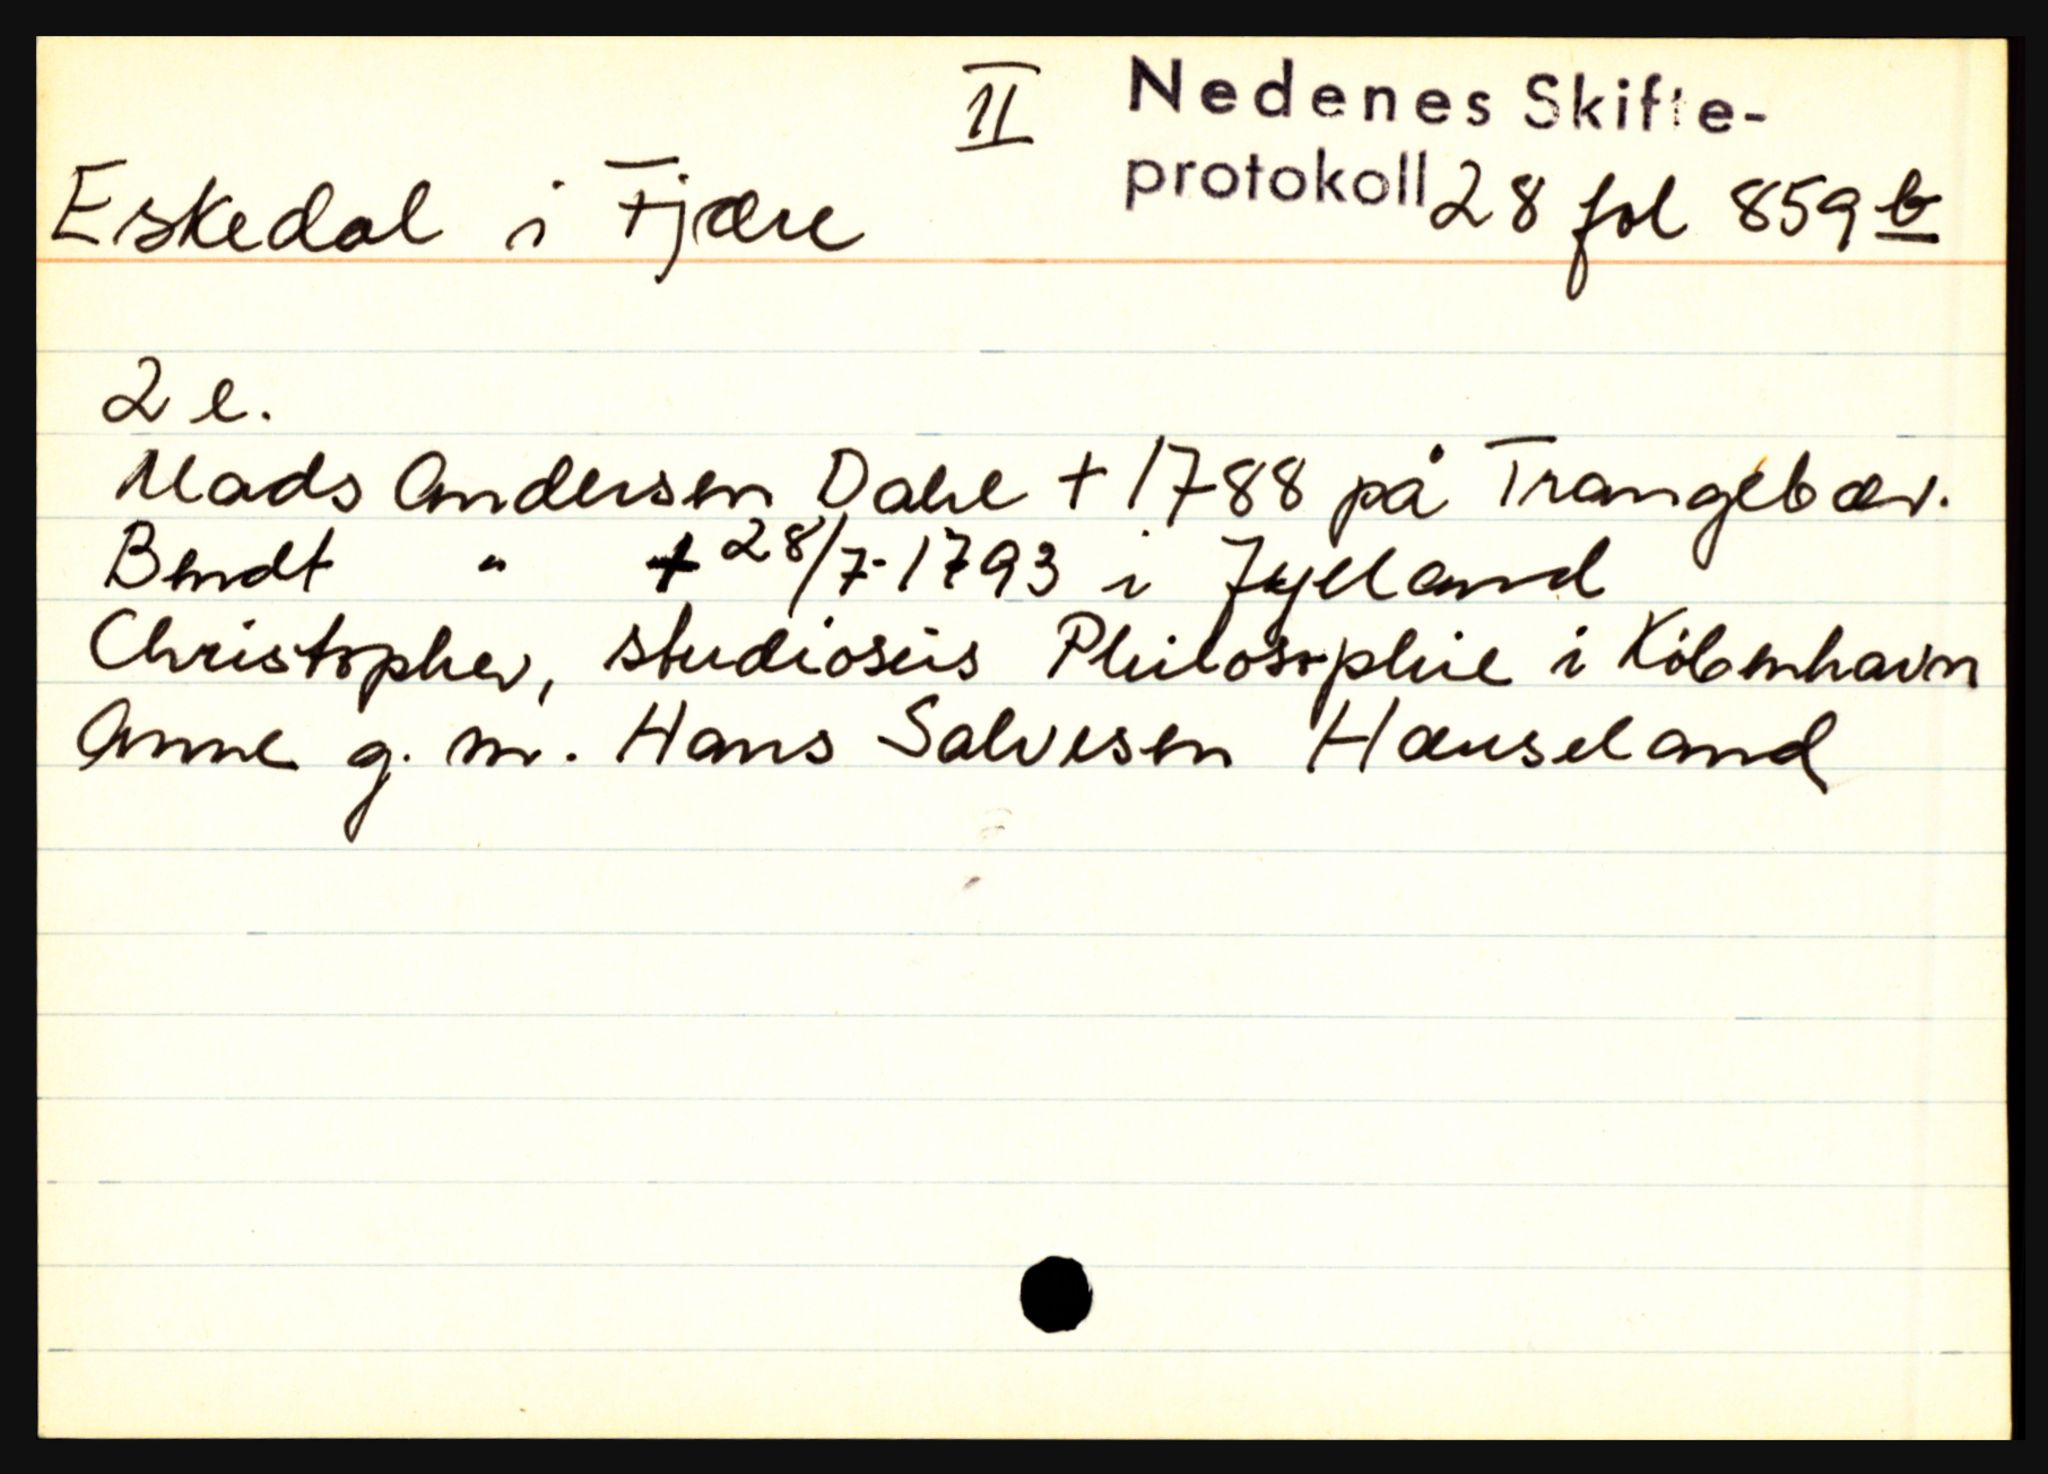 II Nedenes Skifte-
Eskedal i Fjære protokoll 28 fol 859 b
2 e.
Mads Andersen Dahl + 1788 på Trangebær.
Bendt " + 28/7-1793 i Jylland
Christopher, studiosus Philosophie i København
Anne g. m. Hans Salvesen Hæuseland